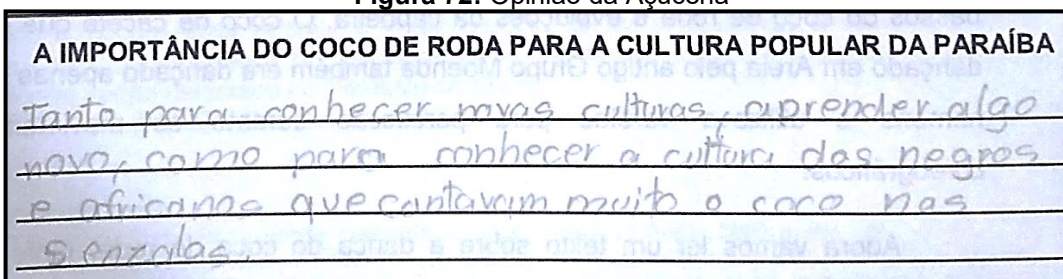 Figura 72: Opinião da Açucena
A IMPORTÂNCIA DO COCO DE RODA PARA A CULTURA POPULAR DA PARAÍBA
Tanto para conhecer novas culturas, aprender algo
novo, como para conhecer a cultura dos negros
e africanos que cantavam muito o coco nas
senzalas.